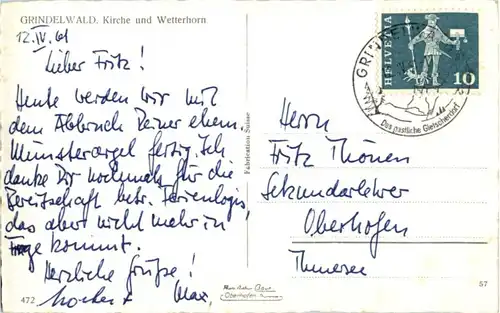 GRINDELWALD. Kirche und Wetterhorn
12. IV. 61
Lieber Fritz!
Heute werden wir mit
dem Abbruch Deiner ehem.
Münsterorgel fertig. Ich
danke Dir nochmals für die
Bereitschaft betr. Ferienlogis,
das aber nicht mehr in
Frage kommt.
Herzliche Grüsse!
Max
472
Fabrication Suisse
HELVETIA
10
GRINDELWALD
Das gastliche Gletscherdorf
Herrn
Fritz Thönen
Sekundarlehrer
Oberhofen
Thunersee
Oberhofen
57